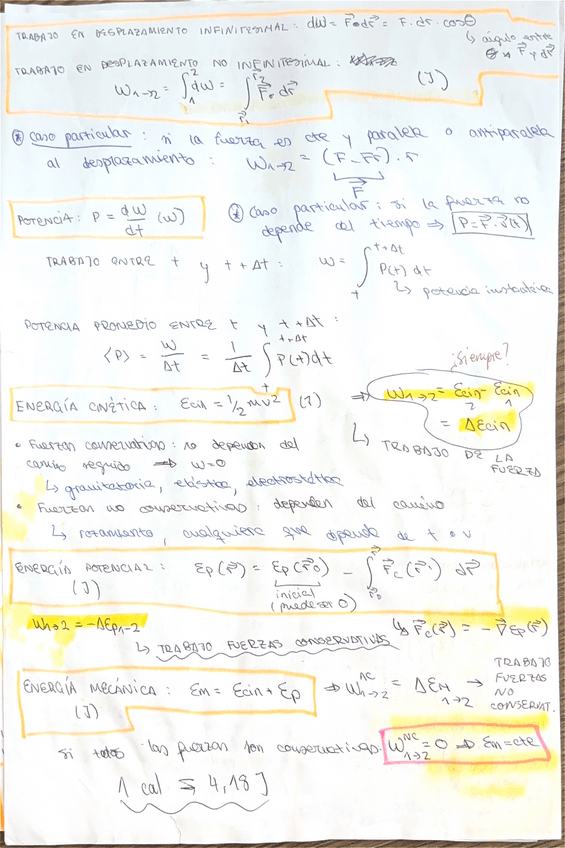 TRABAJO EN DESPLAZAMIENTO INFINITESIMAL: dW = F⃗•dr⃗ = F·dr·cosθ
↳ ángulo entre
θ F⃗ y dr⃗
TRABAJO EN DESPLAZAMIENTO NO INFINITESIMAL:
W1→2 = ∫₁² dW = ∫r⃗₁^r⃗₂ F⃗·dr⃗ (J)
* caso particular: si la fuerza es cte y paralela o antiparalela
al desplazamiento: W1→2 = (F - Fr)·r
F⃗
POTENCIA: P = dW/dt (W)
* caso particular: si la fuerza no
depende del tiempo ⇒ P = F⃗·v⃗(t)
TRABAJO ENTRE t y t+Δt: W = ∫t^t+Δt P(t) dt
↳ potencia instantánea
POTENCIA PROMEDIO ENTRE t y t+Δt:
⟨P⟩ = W/Δt = 1/Δt ∫t^t+Δt P(t)dt
¿siempre?
ENERGÍA CINÉTICA: Ecin = 1/2 mv² (J) ⇒ W1→2 = Ecin2 - Ecin1
= ΔEcin
↳ TRABAJO DE LA
FUERZA
• Fuerzas conservativas: no dependen del
camino seguido ⇒ W=0
↳ gravitatoria, elástica, electrostática
• Fuerzas no conservativas: dependen del camino
↳ rozamiento, cualquiera que dependa de t o v
ENERGÍA POTENCIAL: Ep(r⃗) = Ep(r⃗₀) - ∫r⃗₀^r⃗ F⃗c(r⃗') dr⃗
(J)
inicial
(puede ser 0)
W1→2 = -ΔEp1-2
↳ F⃗c(r⃗) = -∇⃗Ep(r⃗)
↳ TRABAJO FUERZAS CONSERVATIVAS
ENERGÍA MECÁNICA: Em = Ecin + Ep ⇒ W1→2^NC = ΔEM1→2 →
(J)
TRABAJO
FUERZAS
NO
CONSERVAT.
Si todas las fuerzas son conservativas. W1→2^NC = 0 ⇒ Em = cte
1 cal ≤ 4,18 J